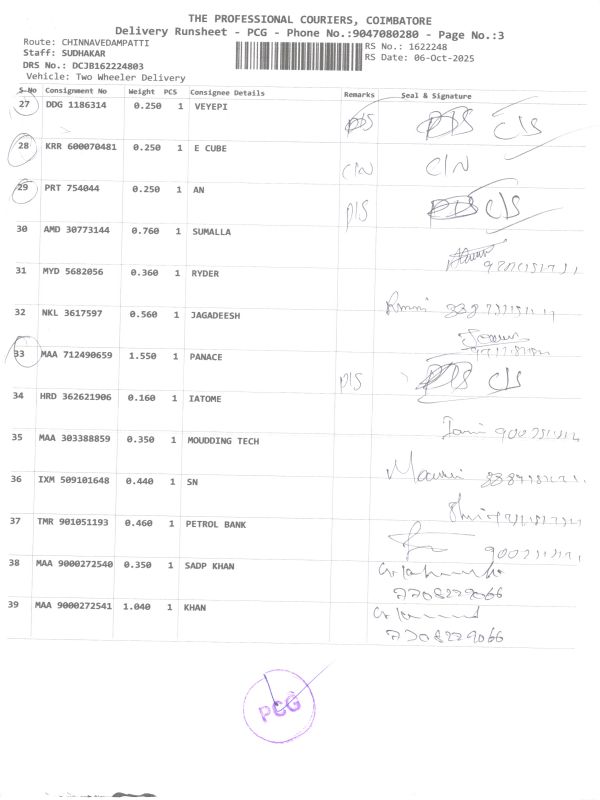 THE PROFESSIONAL COURIERS, COIMBATORE
Delivery Runsheet - PCG - Phone No.:9047080280 - Page No.:3
Route: CHINNAVEDAMPATTI
RS No.: 1622248
Staff: SUDHAKAR
RS Date: 06-Oct-2025
DRS No.: DCJB162224803
Vehicle: Two Wheeler Delivery
S No Consignment No Weight PCS Consignee Details Remarks Seal & Signature
27 DDG 1186314 0.250 1 VEYEPI
D/S D/S C/S
28 KRR 600070481 0.250 1 E CUBE
C/N C/N
29 PRT 754044 0.250 1 AN
D/S D/S C/S
30 AMD 30773144 0.760 1 SUMALLA
31 MYD 5682056 0.360 1 RYDER
32 NKL 3617597 0.560 1 JAGADEESH
33 MAA 712490659 1.550 1 PANACE
D/S D/S C/S
34 HRD 362621906 0.160 1 IATOME
35 MAA 303388859 0.350 1 MOUDDING TECH
36 IXM 509101648 0.440 1 SN
37 TMR 901051193 0.460 1 PETROL BANK
38 MAA 9000272540 0.350 1 SADP KHAN
39 MAA 9000272541 1.040 1 KHAN
PCG